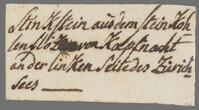 Stinkstein aus dem Steinkoh
lenflöz von Käpfnacht
an der linken Seite des Zürich
Sees